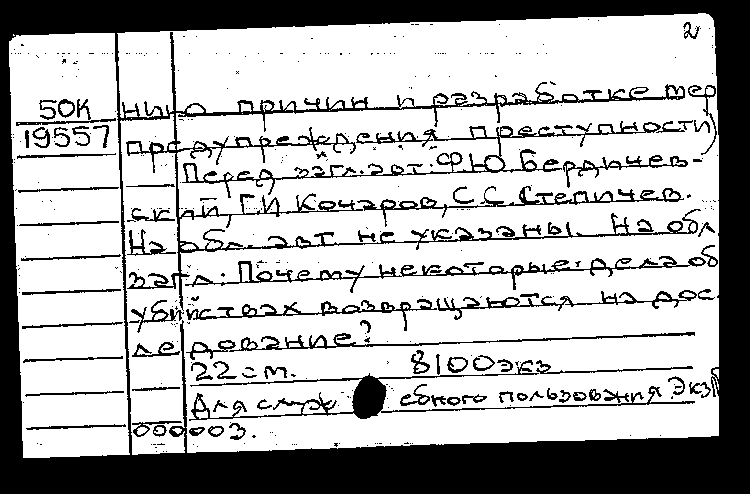 2
50К нию причин и разработке мер
19557 предупреждения преступности)
Перед загл. авт.: Ф.Ю Бердичев-
ский, Г.И Кочаров, С.С. Степичев.
На обл. авт не указаны. На обл
загл: Почему некоторые дела об
убийствах возвращаются на дос
ледование?
22см. 8100экз
Для служ ебного пользования Экз№
000003.